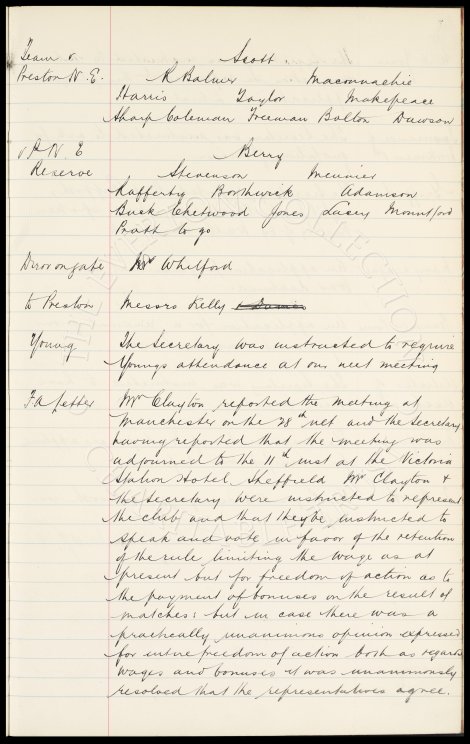 Team v Scott.
Preston N. E. R Balmer Maconnachie
Harris Taylor Makepeace
Sharp Coleman Freeman Bolton Dawson
v P. N. E Berry
Reserve Stevenson Meunier
Rafferty Borthwick Adamson
Buck Chetwood Jones Lacey Mountford
Pratt to go
Dirr on gate Mr Whitford
to Preston Messrs Kelly
Young The Secretary was instructed to require
Youngs attendance at our next meeting
Fa letter Mr Clayton reported the meeting at
Manchester on the 28th ult and the Secretary
having reported that the meeting was
adjourned to the 11th inst at the Victoria
Station Hotel Sheffield Mr Clayton &
the Secretary were instructed to represent
the club and that they be instructed to
speak and vote in favor of the retention
of the rule limiting the wage as at
present but for freedom of action as to
the payment of bonuses on the result of
matches: but in case there was a
practically unanimous opinion expressed
for intire freedom of action both as regards
wages and bonuses it was unanimously
resolved that the representatives agree.
THE EVERTON COLLECTION